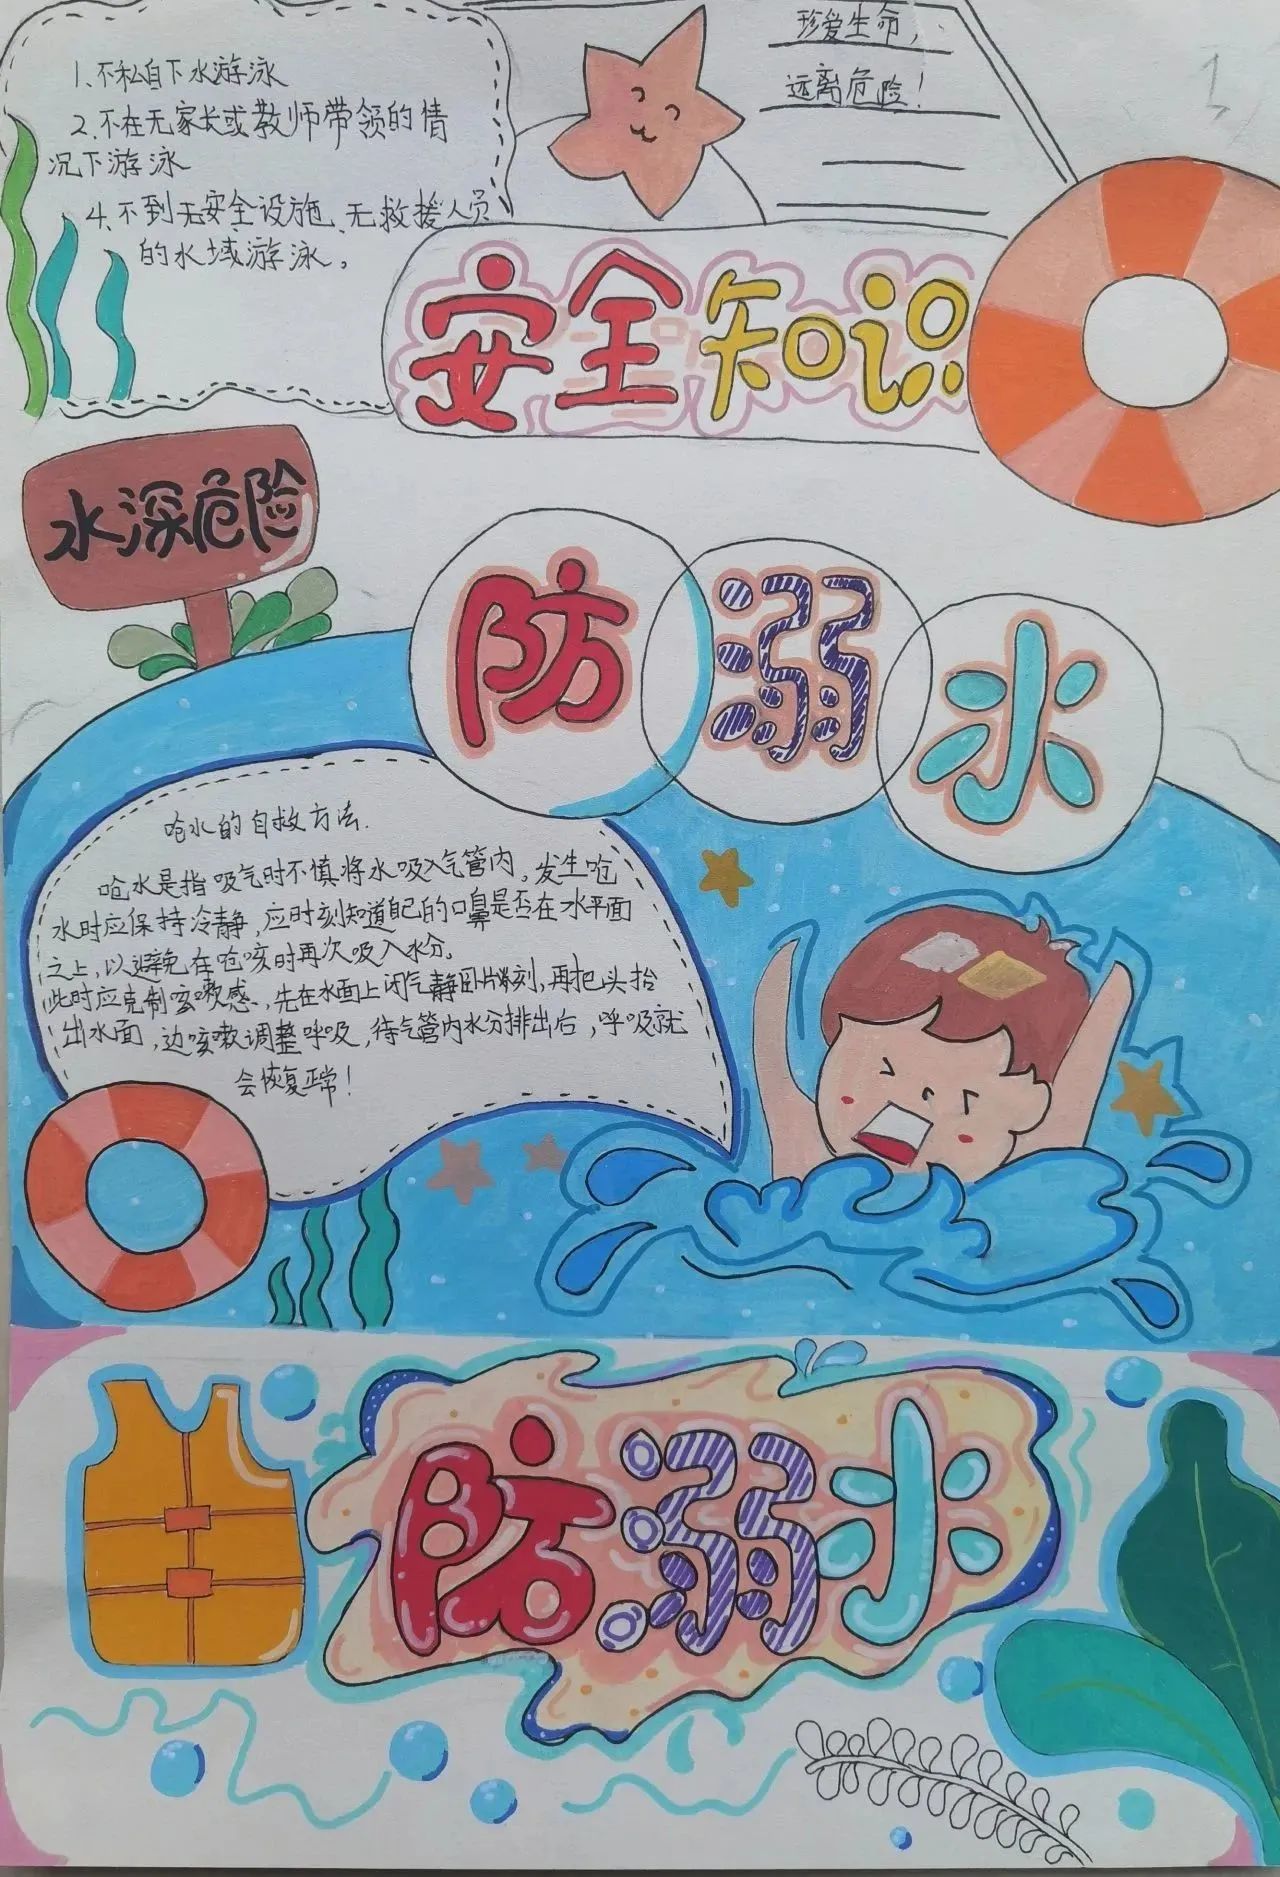 1.不私自下水游泳
2.不在无家长或教师带领的情
况下游泳
4.不到无安全设施、无救援人员
的水域游泳。
珍爱生命，
远离危险！
安全知识
水深危险
防溺水
呛水的自救方法.
呛水是指吸气时不慎将水吸入气管内。发生呛
水时应保持冷静，应时刻知道自己的口鼻是否在水平面
之上，以避免在呛咳时再次吸入水分。
此时应克制咳嗽感，先在水面上闭气静卧片刻，再把头抬
出水面，边咳嗽调整呼吸，待气管内水分排出后，呼吸就
会恢复正常！
防溺水